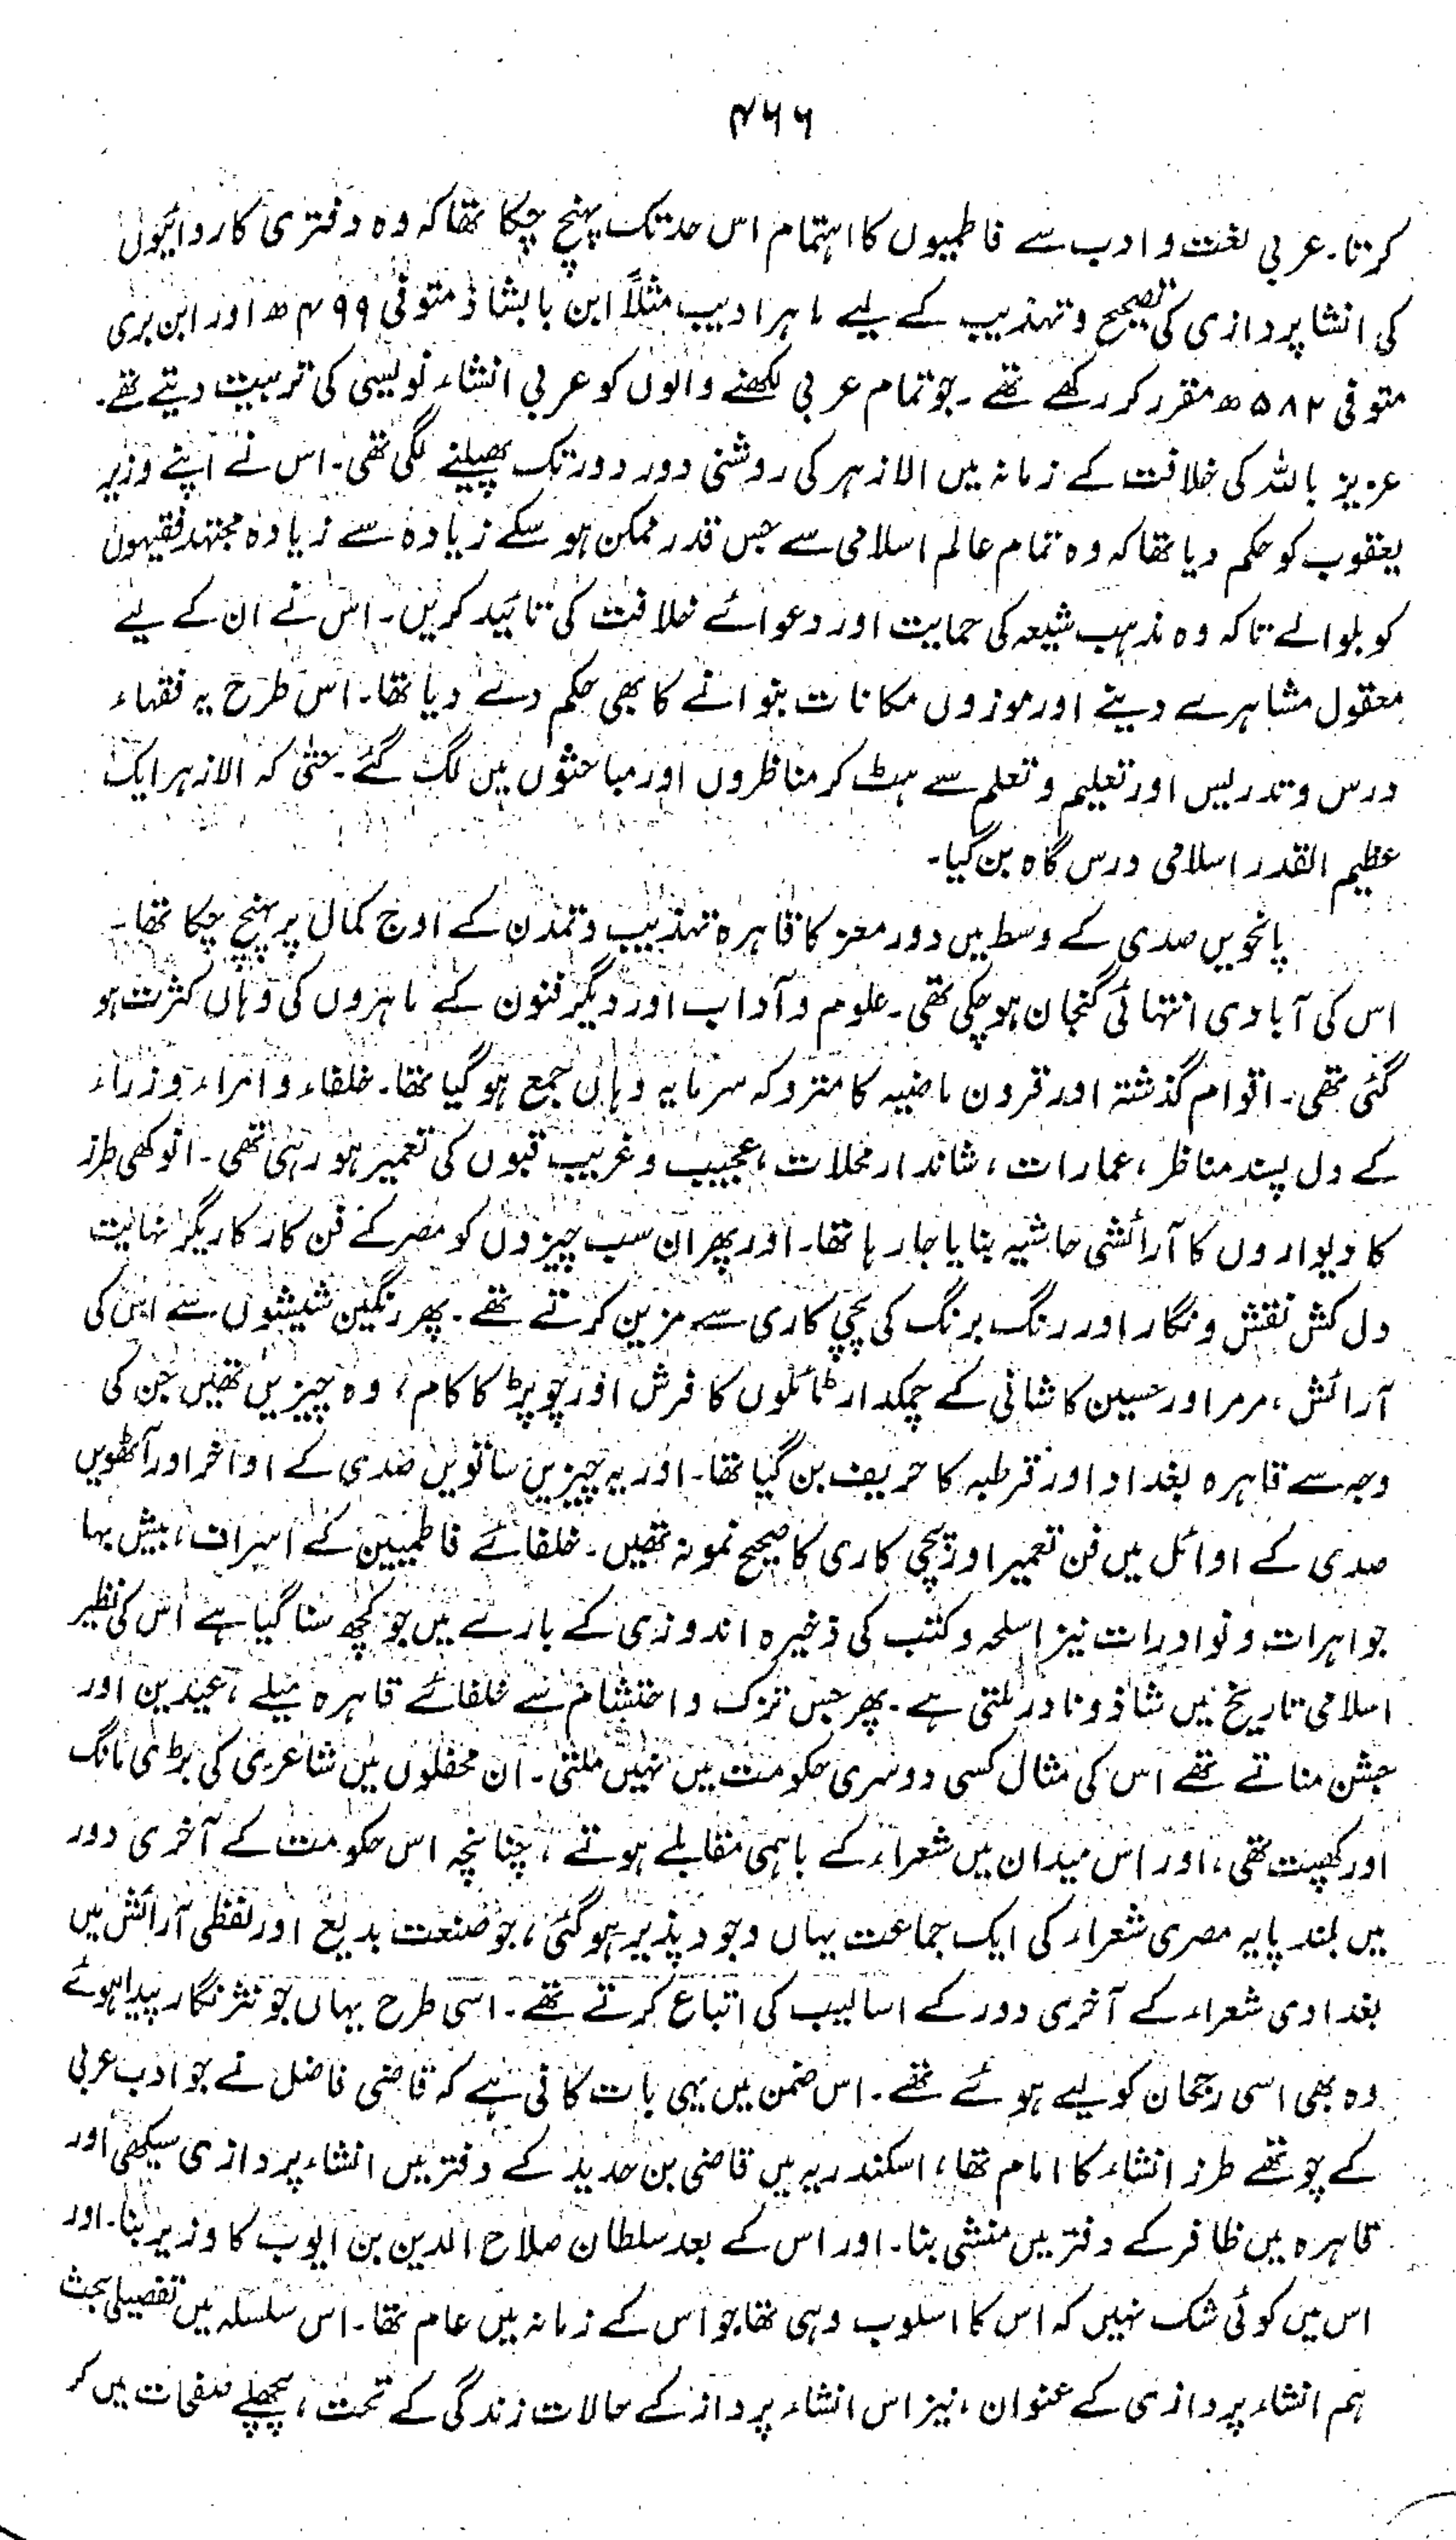 ۴۶۶
کرتا۔ عربی لغت و ادب سے فاطمیوں کا اہتمام اس حد تک پہنچ چکا تھا کہ وہ دفتری کاروائیوں
کی انشا پردازی کی تصحیح و تہذیب کے لیے ماہر ادیب مثلاً ابن بابشاذ متوفی ۴۹۹ ھ اور ابن بری
متوفی ۵۸۲ ھ مقرر کر رکھے تھے۔ جو تمام عربی لکھنے والوں کو عربی انشاء نویسی کی تربیت دیتے تھے۔
عزیز باللہ کی خلافت کے زمانہ میں الازہر کی روشنی دور دور تک پھیلنے لگی تھی۔ اس نے اپنے وزیر
یعقوب کو حکم دیا تھا کہ وہ تمام عالم اسلامی سے جس قدر ممکن ہو سکے زیادہ سے زیادہ مجتہد فقیہوں
کو بلوالے تاکہ وہ مذہب شیعہ کی حمایت اور دعوائے خلافت کی تائید کریں۔ اس نے ان کے لیے
معقول مشاہرے دینے اور موزوں مکانات بنوانے کا بھی حکم دے دیا تھا۔ اس طرح یہ فقہاء
درس و تدریس اور تعلیم و تعلم سے ہٹ کر مناظروں اور مباحثوں میں لگ گئے۔ حتیٰ کہ الازہر ایک
عظیم القدر اسلامی درس گاہ بن گیا۔
پانچویں صدی کے وسط میں دور معز کا قاہرہ تہذیب و تمدن کے اوج کمال پر پہنچ چکا تھا۔
اس کی آبادی انتہائی گنجان ہو چکی تھی۔ علوم و آداب اور دیگر فنون کے ماہروں کی وہاں کثرت ہو
گئی تھی۔ اقوام گذشتہ اور قرون ماضیہ کا متروکہ سرمایہ وہاں جمع ہو گیا تھا۔ خلفاء و امراء و زراء
کے دل پسند مناظر، عمارات، شاندار محلات، عجیب و غریب قبوں کی تعمیر ہو رہی تھی۔ انوکھی طرز
کا دیواروں کا آرائشی حاشیہ بنایا جا رہا تھا۔ اور پھر ان سب چیزوں کو مصر کے فن کار کاریگر نہایت
دل کش نقش و نگار اور رنگ برنگ کی پچی کاری سے مزین کرتے تھے۔ پھر رنگین شیشوں سے اس کی
آرائش، مرمر اور حسین کاشانی کے چمکدار ٹائلوں کا فرش اور چوپڑ کا کام، وہ چیزیں تھیں جن کی
وجہ سے قاہرہ بغداد اور قرطبہ کا حریف بن گیا تھا۔ اور یہ چیزیں ساتویں صدی کے اواخر اور آٹھویں
صدی کے اوائل میں فن تعمیر اور پچی کاری کا صحیح نمونہ تھیں۔ خلفائے فاطمیین کے اسراف، بیش بہا
جواہرات و نوادرات نیز اسلحہ و کتب کی ذخیرہ اندوزی کے بارے میں جو کچھ سنا گیا ہے اس کی نظیر
اسلامی تاریخ میں شاذ و نادر ملتی ہے۔ پھر جس تزک و احتشام سے خلفائے قاہرہ میلے، عیدین اور
جشن مناتے تھے اس کی مثال کسی دوسری حکومت میں نہیں ملتی۔ ان محفلوں میں شاعری کی بڑی مانگ
اور کھپت تھی، اور اس میدان میں شعراء کے باہمی مقابلے ہوتے، چنانچہ اس حکومت کے آخری دور
میں بلند پایہ مصری شعراء کی ایک جماعت یہاں وجود پذیر ہو گئی، جو صنعت بدیع اور لفظی آرائش میں
بغدادی شعراء کے آخری دور کے اسالیب کی اتباع کرتے تھے۔ اسی طرح یہاں جو نثر نگار پیدا ہوئے
وہ بھی اسی رجحان کو لیے ہوئے تھے۔ اس ضمن میں یہی بات کافی ہے کہ قاضی فاضل نے جو ادب عربی
کے چوتھے طرز انشاء کا امام تھا، اسکندریہ میں قاضی بن حدید کے دفتر میں انشاء پردازی سیکھی اور
قاہرہ میں ظافر کے دفتر میں منشی بنا۔ اور اس کے بعد سلطان صلاح الدین بن ایوب کا وزیر بنا۔ اور
اس میں کوئی شک نہیں کہ اس کا اسلوب وہی تھا جو اس کے زمانہ میں عام تھا۔ اس سلسلہ میں تفصیلی بحث
ہم انشاء پردازی کے عنوان، نیز اس انشاء پرداز کے حالات زندگی کے تحت، پچھلے صفحات میں کر